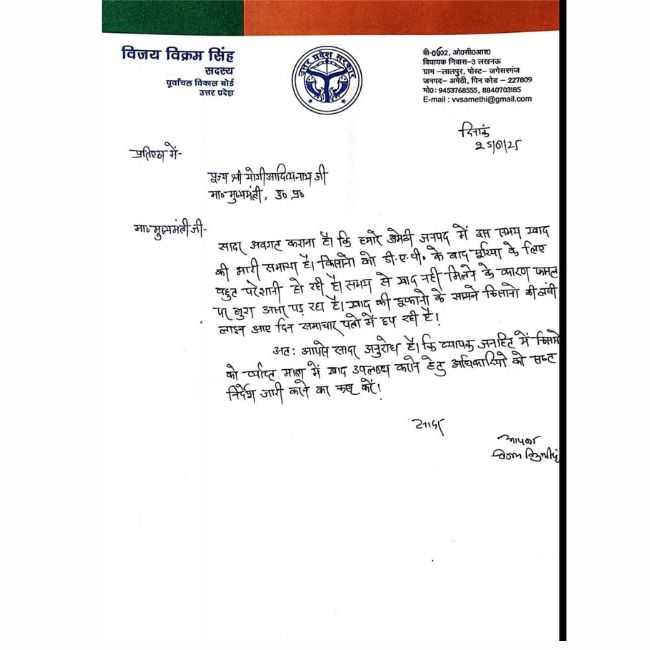 विजय विक्रम सिंह
सदस्य
पूर्वांचल विकास बोर्ड
उत्तर प्रदेश
उत्तर प्रदेश सरकार
बी-0602, ओ०सी०आर०
विधायक निवास-3 लखनऊ
ग्राम -लालपुर, पोस्ट- जगेसरगंज
जनपद- अमेठी, पिन कोड - 227809
मो०: 9453768555, 8840703185
E-mail : vvsamethi@gmail.com
दिनांक
प्रतिष्ठा में-
पूज्य श्री योगी आदित्यनाथ जी
मा० मुख्यमंत्री, उ० प्र०
मा० मुख्यमंत्री जी-
सादर अवगत कराना है। कि हमारे अमेठी जनपद में इस समय खाद
की भारी समस्या है। किसानो को डी.ए.पी. के बाद यूरिया के लिए
बहुत परेशानी हो रही है। समय से खाद नही मिलने के कारण फसल
पर बुरा असर पड़ रहा है। खाद की दुकानो के सामने किसानो की लंबी
लाइन आए दिन समाचार पत्रो में छप रही है!
अतः आपसे सादर अनुरोध है। कि व्यापक जनहित में किसानो
को पर्याप्त मात्रा में खाद उपलब्ध कराने हेतु अधिकारियो को सख्त
निर्देश जारी करने का कष्ट करें!
सादर
आपका